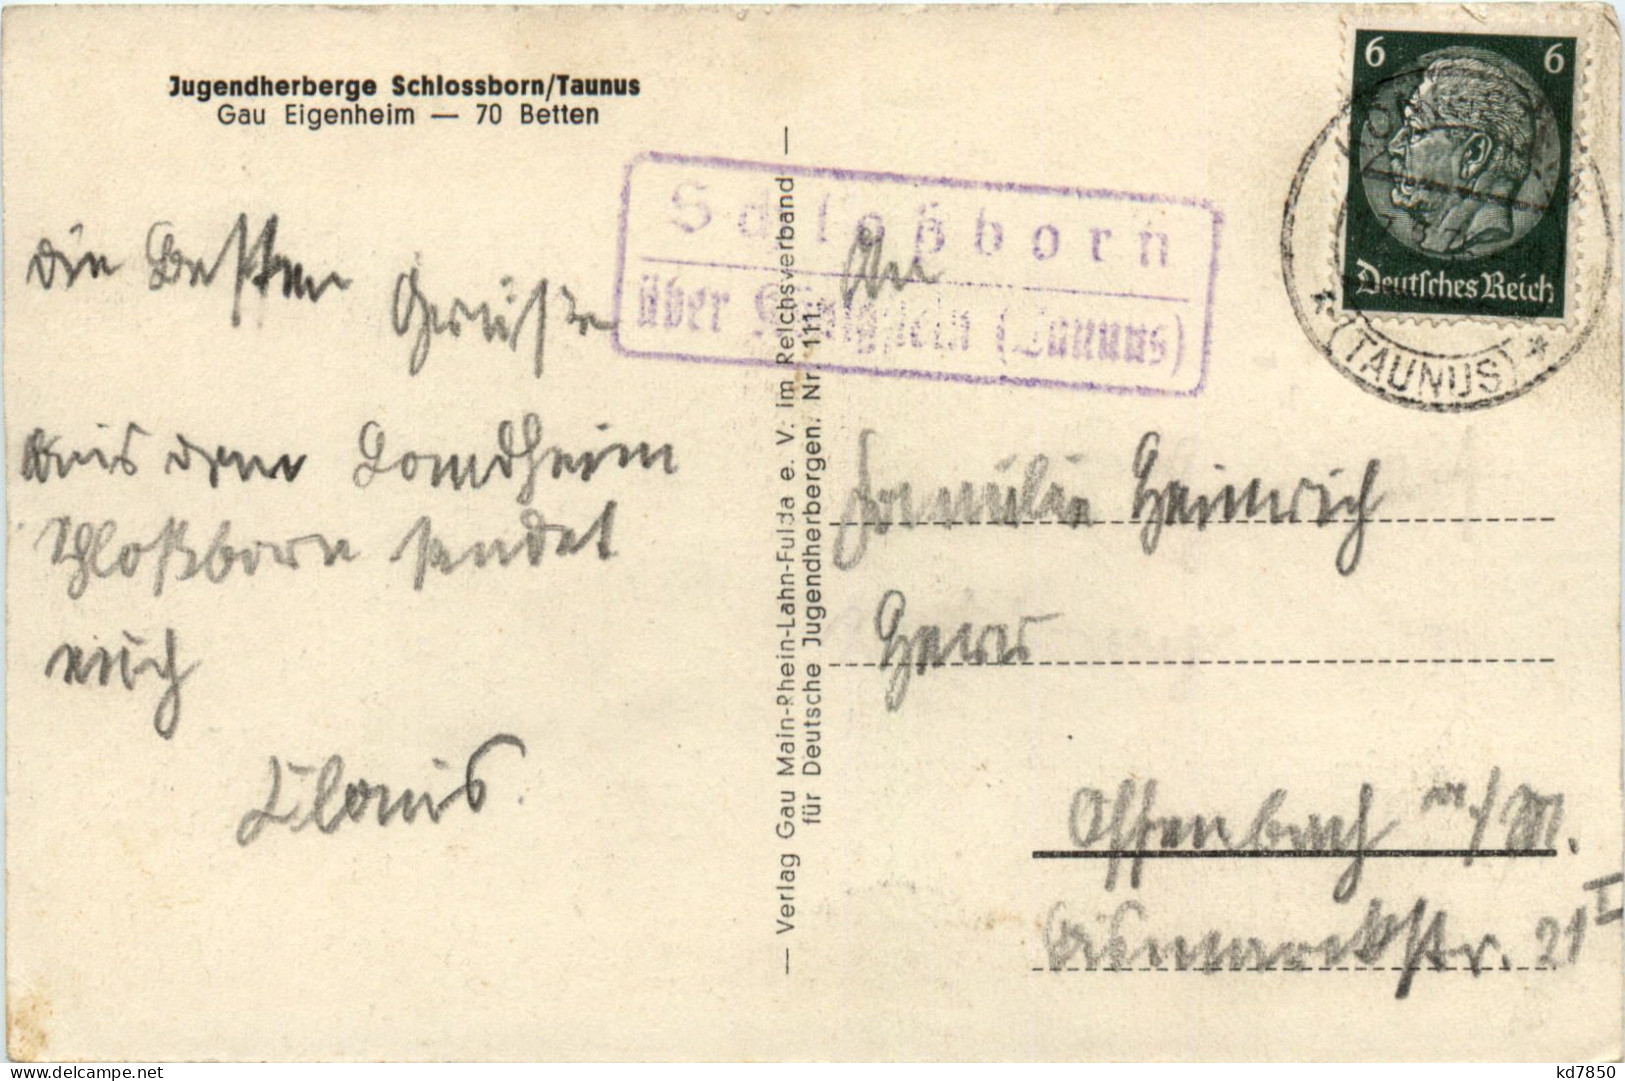 Jugendherberge Schlossborn/Taunus
Gau Eigenheim — 70 Betten
die Besten Grüße
aus dem Landheim
Schloßborn sendet
euch
Schloßborn
über Königstein (Taunus)
— Verlag Gau Main-Rhein-Lahn-Fulda e. V. im Reichsverband —
für Deutsche Jugendherbergen. Nr. 111.
6 6
Deutsches Reich
* (TAUNUS) *
An
Familie Heinrich
Offenbach a/M.
Bismarckstr. 21 I
kd7850